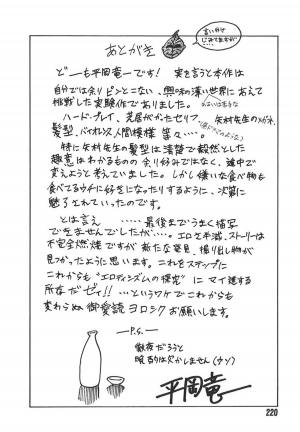 あとがき
言い分け
じみてますが
どーも平岡竜一です! 実を言うと本作は
自分では余りピンとこない、興味の薄い世界にあえて
挑戦した実験作でありました。
ハード・プレイ、芝居がかったセリフ、矢村先生のメガネ、
髪型、バイオレンス、人間模様 等々……。
特に矢村先生の髪型は清楚で毅然とした
趣意はわかるものの 余り好みではなく、途中で
変えようと考えていました。しかし嫌いな食べ物も
食べてるウチに好きになったりするように、次第に
魅了されていったのです。
とは言え ……最後までうまく描写
できませんでしたが…。エロも半減、ストーリーは
不完全燃焼ですが 新たな発見、掘り出し物が
見つかったように思います。これをステップに
これからも"エロティシズムの探究"に マイ進する
所存だゼィ!! …というワケでこれからも
変わらぬ御愛読 ヨロシクお願いします。
―P.S.―
徹夜だろうと
晩酌は欠かしません(ウソ)
平岡竜一
220